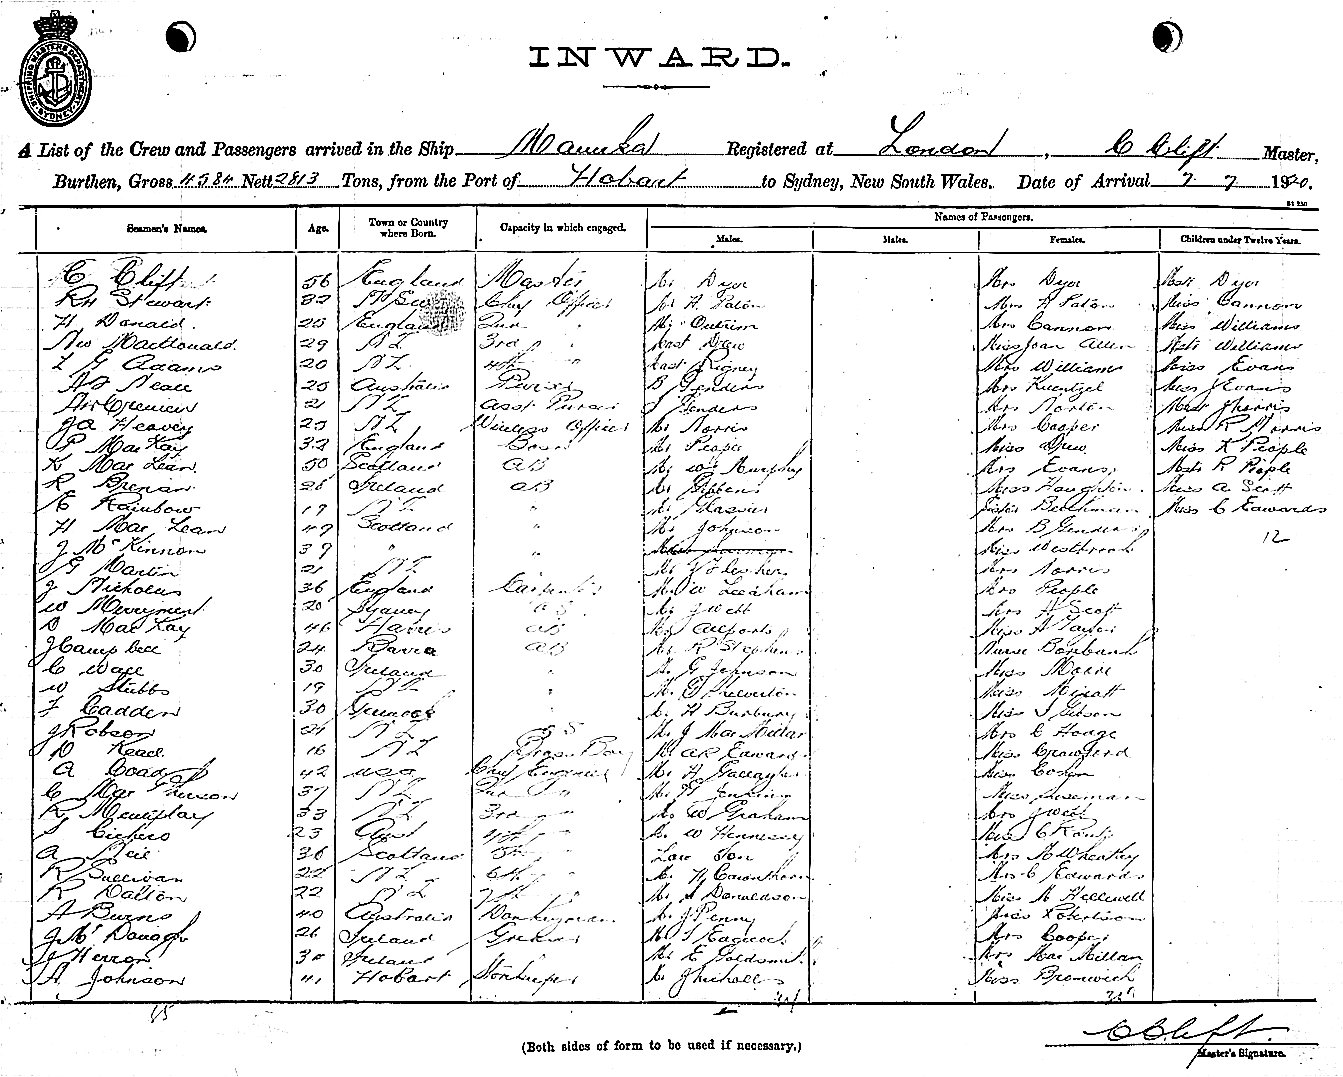 SHIPPING MASTERS DEPARTMENT SYDNEY
INWARD.
A List of the Crew and Passengers arrived in the Ship Manuka Registered at London, C Clift Master,
Burthen, Gross 4534 Nett 2813 Tons, from the Port of Hobart to Sydney, New South Wales. Date of Arrival 7 7 1920.
Names of Passengers.
Seamen's Names. Age. Town or Country where Born. Capacity in which engaged. Males. Males. Females. Children under Twelve Years.
C Clift 56 England Master Mr Dyer Mrs Dyer Mstr Dyer
RH Stewart 32 Chf Officer Mr A Paton Mrs A Paton Miss Cannon
H Donald. 25 England 2nd " Mr Outrim Mrs Cannon Miss Williams
MacDonald 29 NZ 3rd " Mast Drew Miss Joan Allen Mstr Williams
L G Adams 20 NZ 4th " Mast Rigney Mrs Williams Miss Evans
Neale 20 Australia Purser B Genders Mrs Kuentzel Miss J Evans
21 NZ Asst Purser J Genders Mrs Norton Mast J Norris
JA Heavey 25 NZ Wireless Officer Mr Norris Mrs Cooper Miss R Norris
P MacKay 32 England Bosn Mr People Miss Drew Miss K People
K MacLean 50 Scotland AB Mr Wm Murphy Mrs Evans, Mstr R People
R Brenan 26 Ireland AB Mr Gibbens Miss Haughton Miss A Scott
E Rainbow 19 NZ " Mr Glassier Sister Beechman Miss C Edwards
H MacLean 49 Scotland " Mr Johnson Mrs B Genders 12
J McKinnon 39 " " Miss Westbrook
G Martin 21 NZ Mr Folesher Mrs Norris
J Nicholas 36 England Carpenter Mr W Leedham Mrs People
W Merryment 20 Sydney OS Mr J Wett Mrs A Scott
D MacKay 46 Harris AB Mr Allport Miss A Taylor
J Campbell 24 Barra AB Mr R Stephens Nurse Bonbank
C Wall 30 Ireland " Mr G Johnson Miss Moore
W Stubbs 19 NZ " Mr G Pulverton Miss Mizatt
F Cadden 30 Greenock Mr H Burbury Miss I Gibson
J Robson 21 NZ OS Mr J MacMillan Mrs C Hodge
D Keall 16 NZ Brass Boy Mr AR Edwards Miss Crawford
A Goad 42 USA Chief Engineer Mr H Gallagher Miss
C MacPherson 37 NZ 2nd " Mr H Jenkins Miss
R Mouniplay 33 NZ 3rd " Mr W Graham Mrs J Wett
S Cickero 23 Aust 4th " Mr W Hennessy Miss C Rout
A Neil 36 Scotland 5th " Low Ton Mrs M Wheatley
R Sullivan 22 NZ 6th " Mr H Cawthorn Mrs C Edwards
R Dalton 22 NZ 7th " Mr S Donaldson Miss M Hellewell
A Burns 40 Australia Donkeyman Mr J Penny Miss Robertson
J McDonagh 26 Ireland Greaser Mr T Hadcock Mrs Cooper
J Herron 30 Ireland " Mr E Goldsmith Mrs MacMillan
A Johnson 41 Hobart Storekeeper Mr J Nicholls Miss Bromwich
35 34 35
(Both sides of form to be used if necessary.)
C Clift.
Master's Signature.